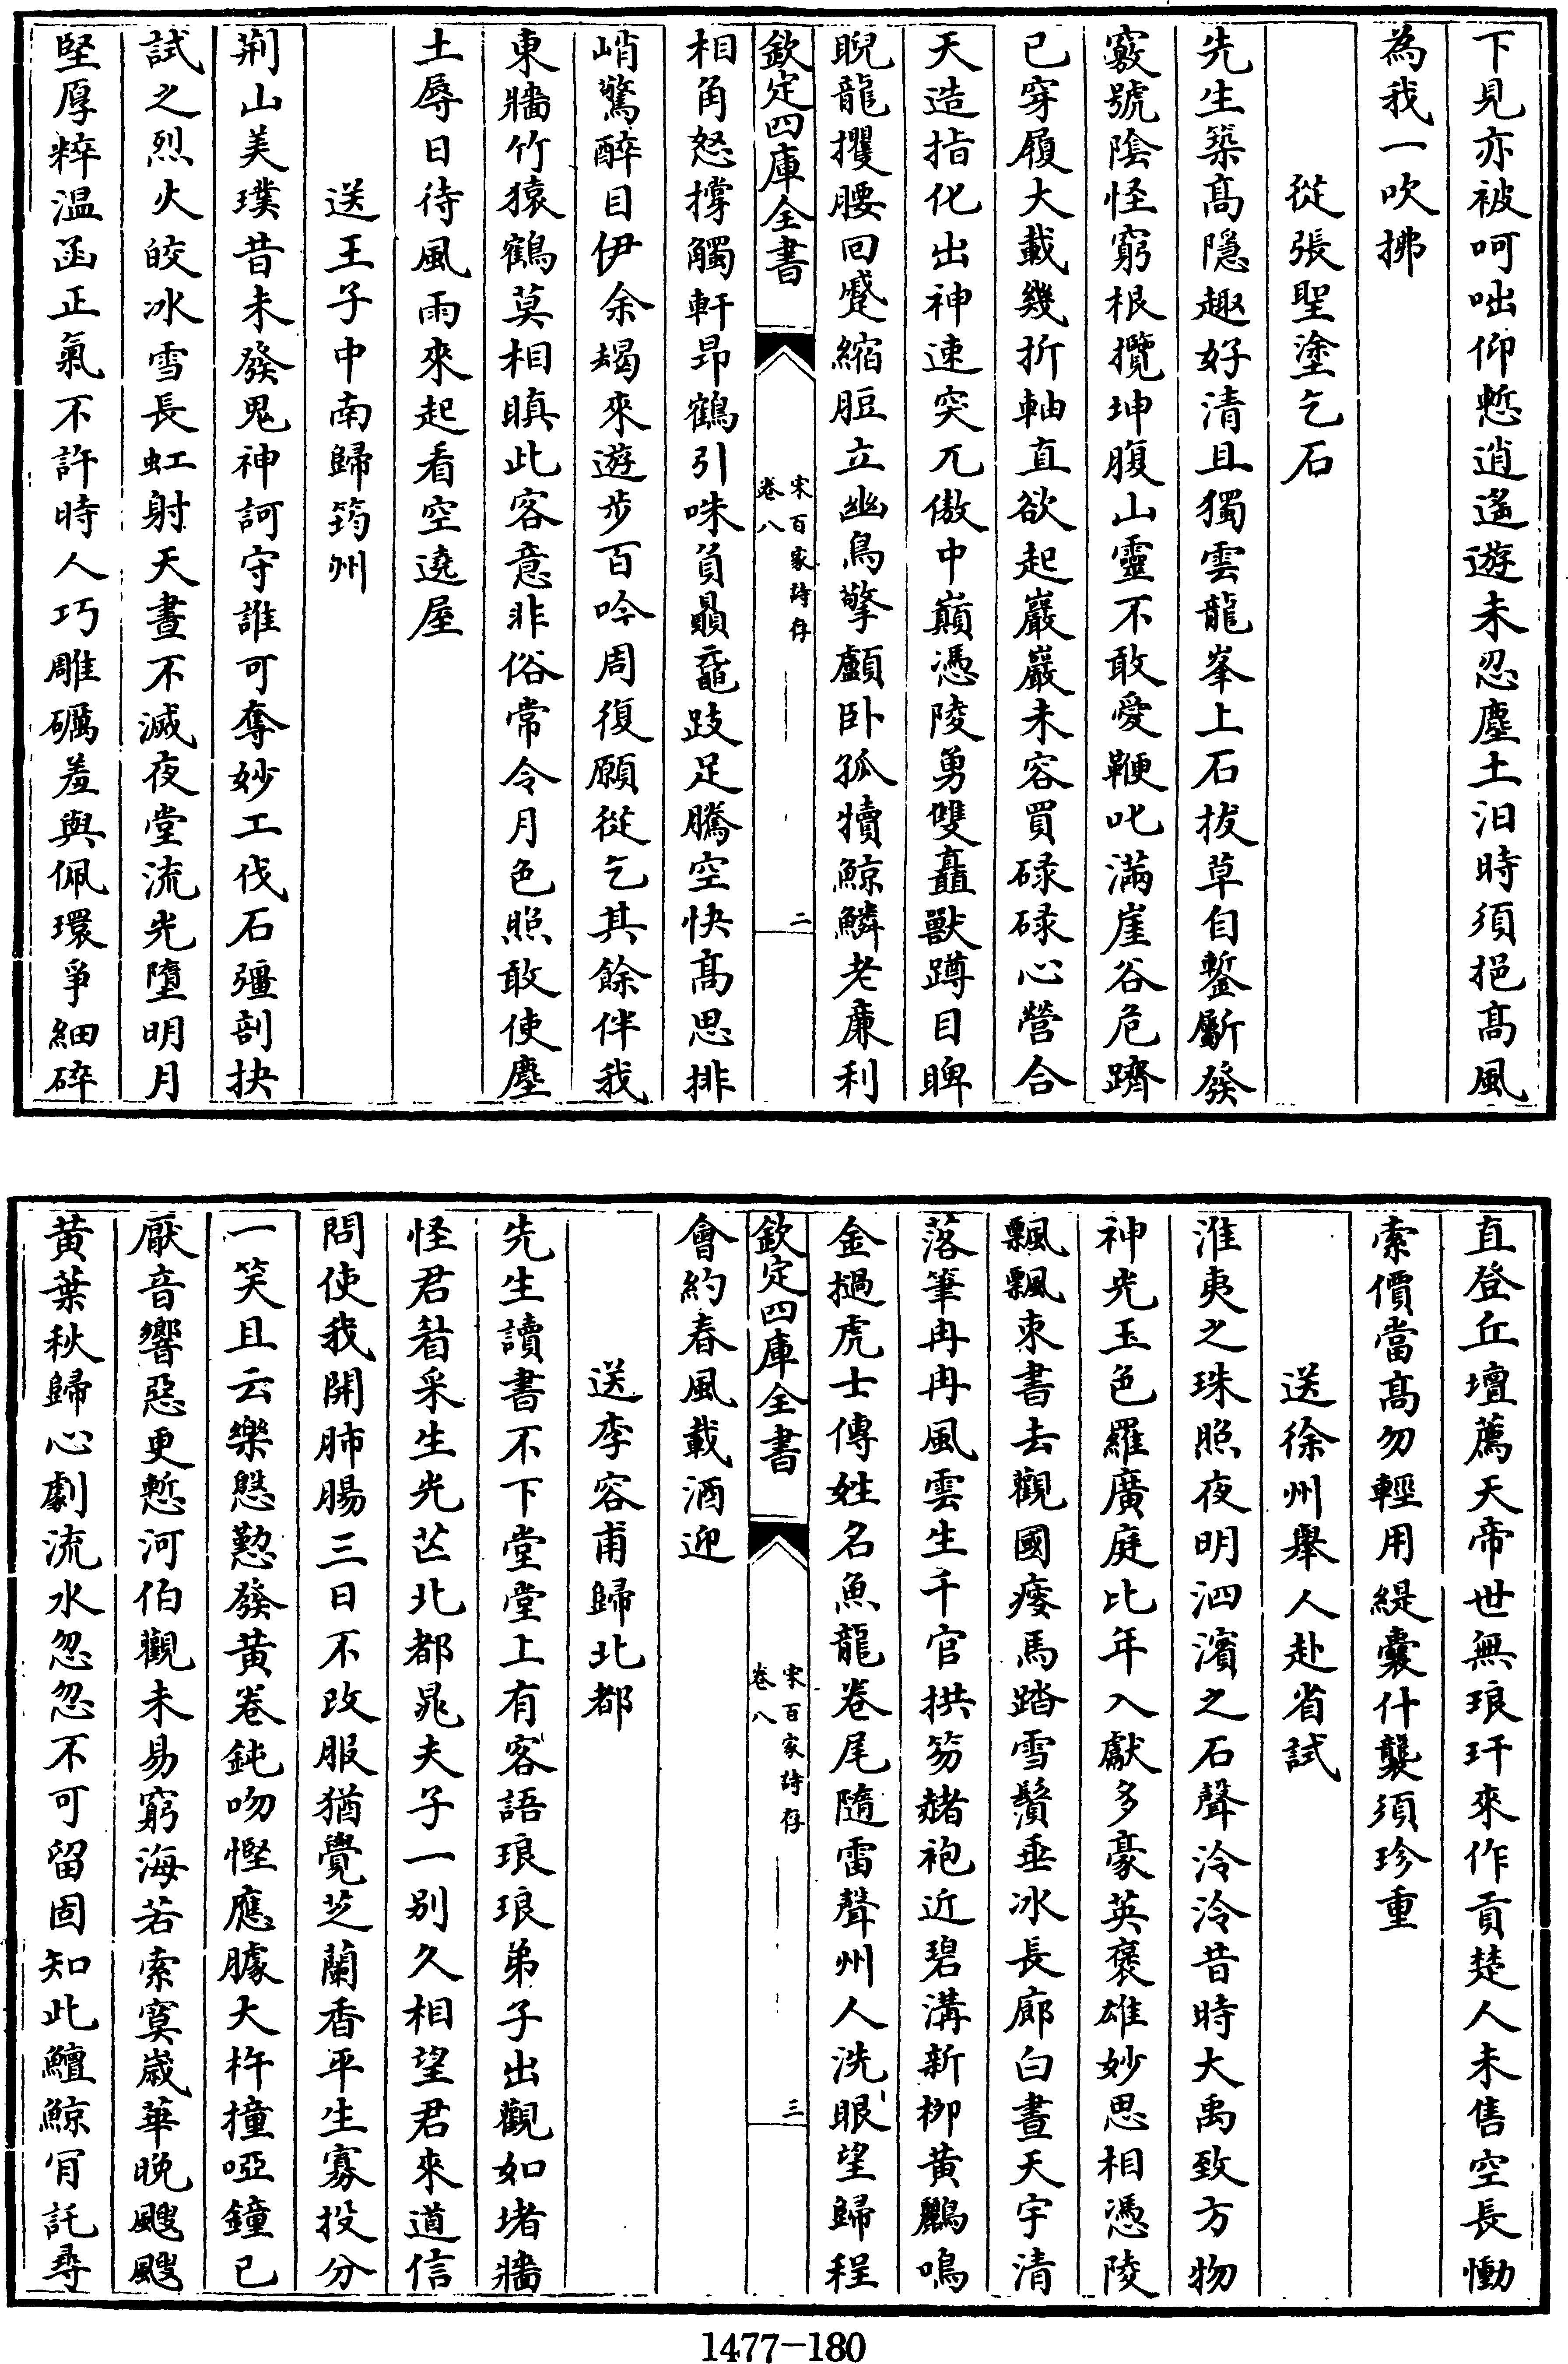 下見亦被呵咄仰慙逍遙遊未忍塵土汩時須挹髙風
為我一吹拂
從張聖塗乞石
先生築髙隱趣好清且獨雲龍峯上石拔草自鏨斸發
竅號陰怪窮根攬坤腹山靈不敢愛鞭叱滿崖谷危躋
已穿履大載幾折軸直欲起巖巖未容買碌碌心營合
天造指化出神速突兀傲中巔憑陵勇雙矗獸蹲目睥
睨龍攫腰回蹙縮脰立幽鳥擎顱卧孤犢鯨鱗老廉利
欽定四庫全書
宋百家詩存
卷八
二
相角怒撐觸軒昂鶴引咮負贔黿跂足騰空快髙思排
峭驚醉目伊余朅來遊步百吟周復願從乞其餘伴我
東牆竹猿鶴莫相瞋此客意非俗常令月色照敢使塵
土辱日待風雨來起看空遶屋
送王子中南歸筠州
荆山美璞昔未發鬼神訶守誰可奪妙工伐石彊剖抉
試之烈火皎冰雪長虹射天晝不滅夜堂流光墮明月
堅厚粹溫函正氣不許時人巧雕礪羞與佩環爭細碎
直登丘壇薦天帝世無琅玕來作貢楚人未售空長慟
索價當髙勿輕用緹囊什襲須珍重
送徐州舉人赴省試
淮夷之珠照夜明泗濱之石聲泠泠昔時大禹致方物
神光玉色羅廣庭比年入獻多豪英褒雄妙思相憑陵
飄飄束書去觀國瘘馬踏雪鬚垂冰長廊白晝天宇清
落筆冉冉風雲生千官拱笏赭袍近碧溝新栁黄鸝鳴
金撾虎士傳姓名魚龍卷尾隨雷聲州人洗眼望歸程
欽定四庫全書
宋百家詩存
卷八
三
會約春風載酒迎
送李容甫歸北都
先生讀書不下堂堂上有客語琅琅弟子出觀如堵牆
怪君着采生光芒北都晁夫子一别久相望君來道信
問使我開肺腸三日不改服猶覺芝蘭香平生寡投分
一笑且云樂慇懃發黄卷鈍吻慳應臄大杵撞啞鐘已
厭音響惡更慙河伯觀未易窮海若索寞歳華晚颼颼
黄葉秋歸心劇流水忽忽不可留固知此鱣鯨肎託尋
1477-180